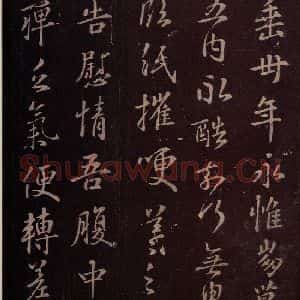 垂卅年永惟
五内永酷奈何無由
臨紙摧哽羲之
告慰情吾腹中
殫之氣便轉差
Shufawang.Cn